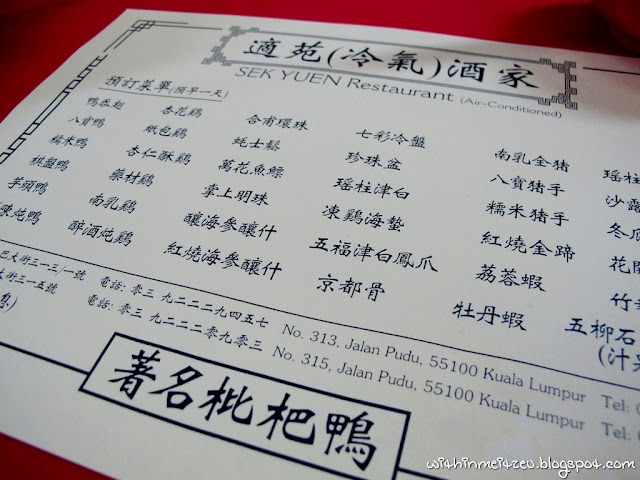 適苑(冷氣)酒家
SEK YUEN Restaurant (Air-Conditioned)
預訂菜單(預早一天)
鴨吞翅 杏花鷄 合甫環珠 七彩冷盤 南乳全猪 瑤柱
八寶鴨 紙包鷄 蚝士鬆 珍珠盆 八寶猪手 沙
糯米鴨 杏仁酥鷄 萬花魚鰾 瑤柱津白 糯米猪手 冬瓜
棋盤鴨 藥材鷄 掌上明珠 凍鷄海蜇 紅燒全蹄 花
芋頭鴨 南乳鷄 釀海參釀什 五福津白鳳爪 荔蓉蝦 竹
炖鴨 醉酒炖鷄 紅燒海參釀什 京都骨 牡丹蝦 五柳石
(汁
巴大街三一三/一號 電話: 零三 九二二二九四五七 No. 313, Jalan Pudu, 55100 Kuala Lumpur Tel:
大街三一五號 電話: 零三 九二二二零九零三 No. 315, Jalan Pudu, 55100 Kuala Lumpur Tel:
著名枇杷鴨
withinmei4zeu.blogspot.com